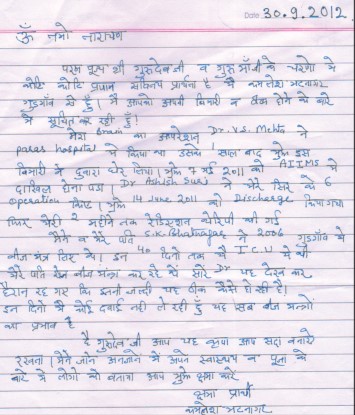 Date 30.9.2012
ॐ नमो नारायण
परम पूज्य श्री गुरुदेव जी व गुरु माँ जी के चरणो मे
कोटि कोटि प्रणाम सविनय प्रार्थना है मैं कमलेश भटनागर
गुड़गाँव से हूँ। मैं आपको अपनी बिमारी व ठीक होने के बारे
मे सूचित कर रही हूँ।
मेरा brain का अपरेशन Dr. V.S. Mehta ने
paras hospital मे किया था उसके 1 साल बाद मुझे इस
बिमारी ने दुबारा घेर लिया। मुझे 7 मई 2011 को AIIMS मे
दाखिल होना पड़ा। Dr Ashish Suri ने मेरे सिर के 6
operation किए। मुझे 14 June 2011 को Discharge किया गया
फिर मेरी 2 महीने तक रेडिएशन थैरेपी की गई
मैंने व मेरे पति S.K. Bhatnagar ने 2006 गुड़गाँव से
बीज मंत्र लिए थे। इन 40 दिनो तक मैं I.C.U मे थी
मेरे पति रोज बीज मंत्रो कर रहे थे सारे Dr यह देख कर
हैरान रह गए कि इतनी जल्दी यह ठीक कैसे हो रही है।
इन दिनो मैं कोई दवाई नही ले रही हूँ यह सब बीज मंत्रो
का प्रभाव है
हे गुरुदेव जी आप यह कृपा आप सदा बनाये
रखना। मैंने जाने अनजाने मे अपने स्वास्थय व पूजा के
बारे मे लोगो को बताया आप मुझे क्षमा करे
क्षमा प्रार्थी
कमलेश भटनागर